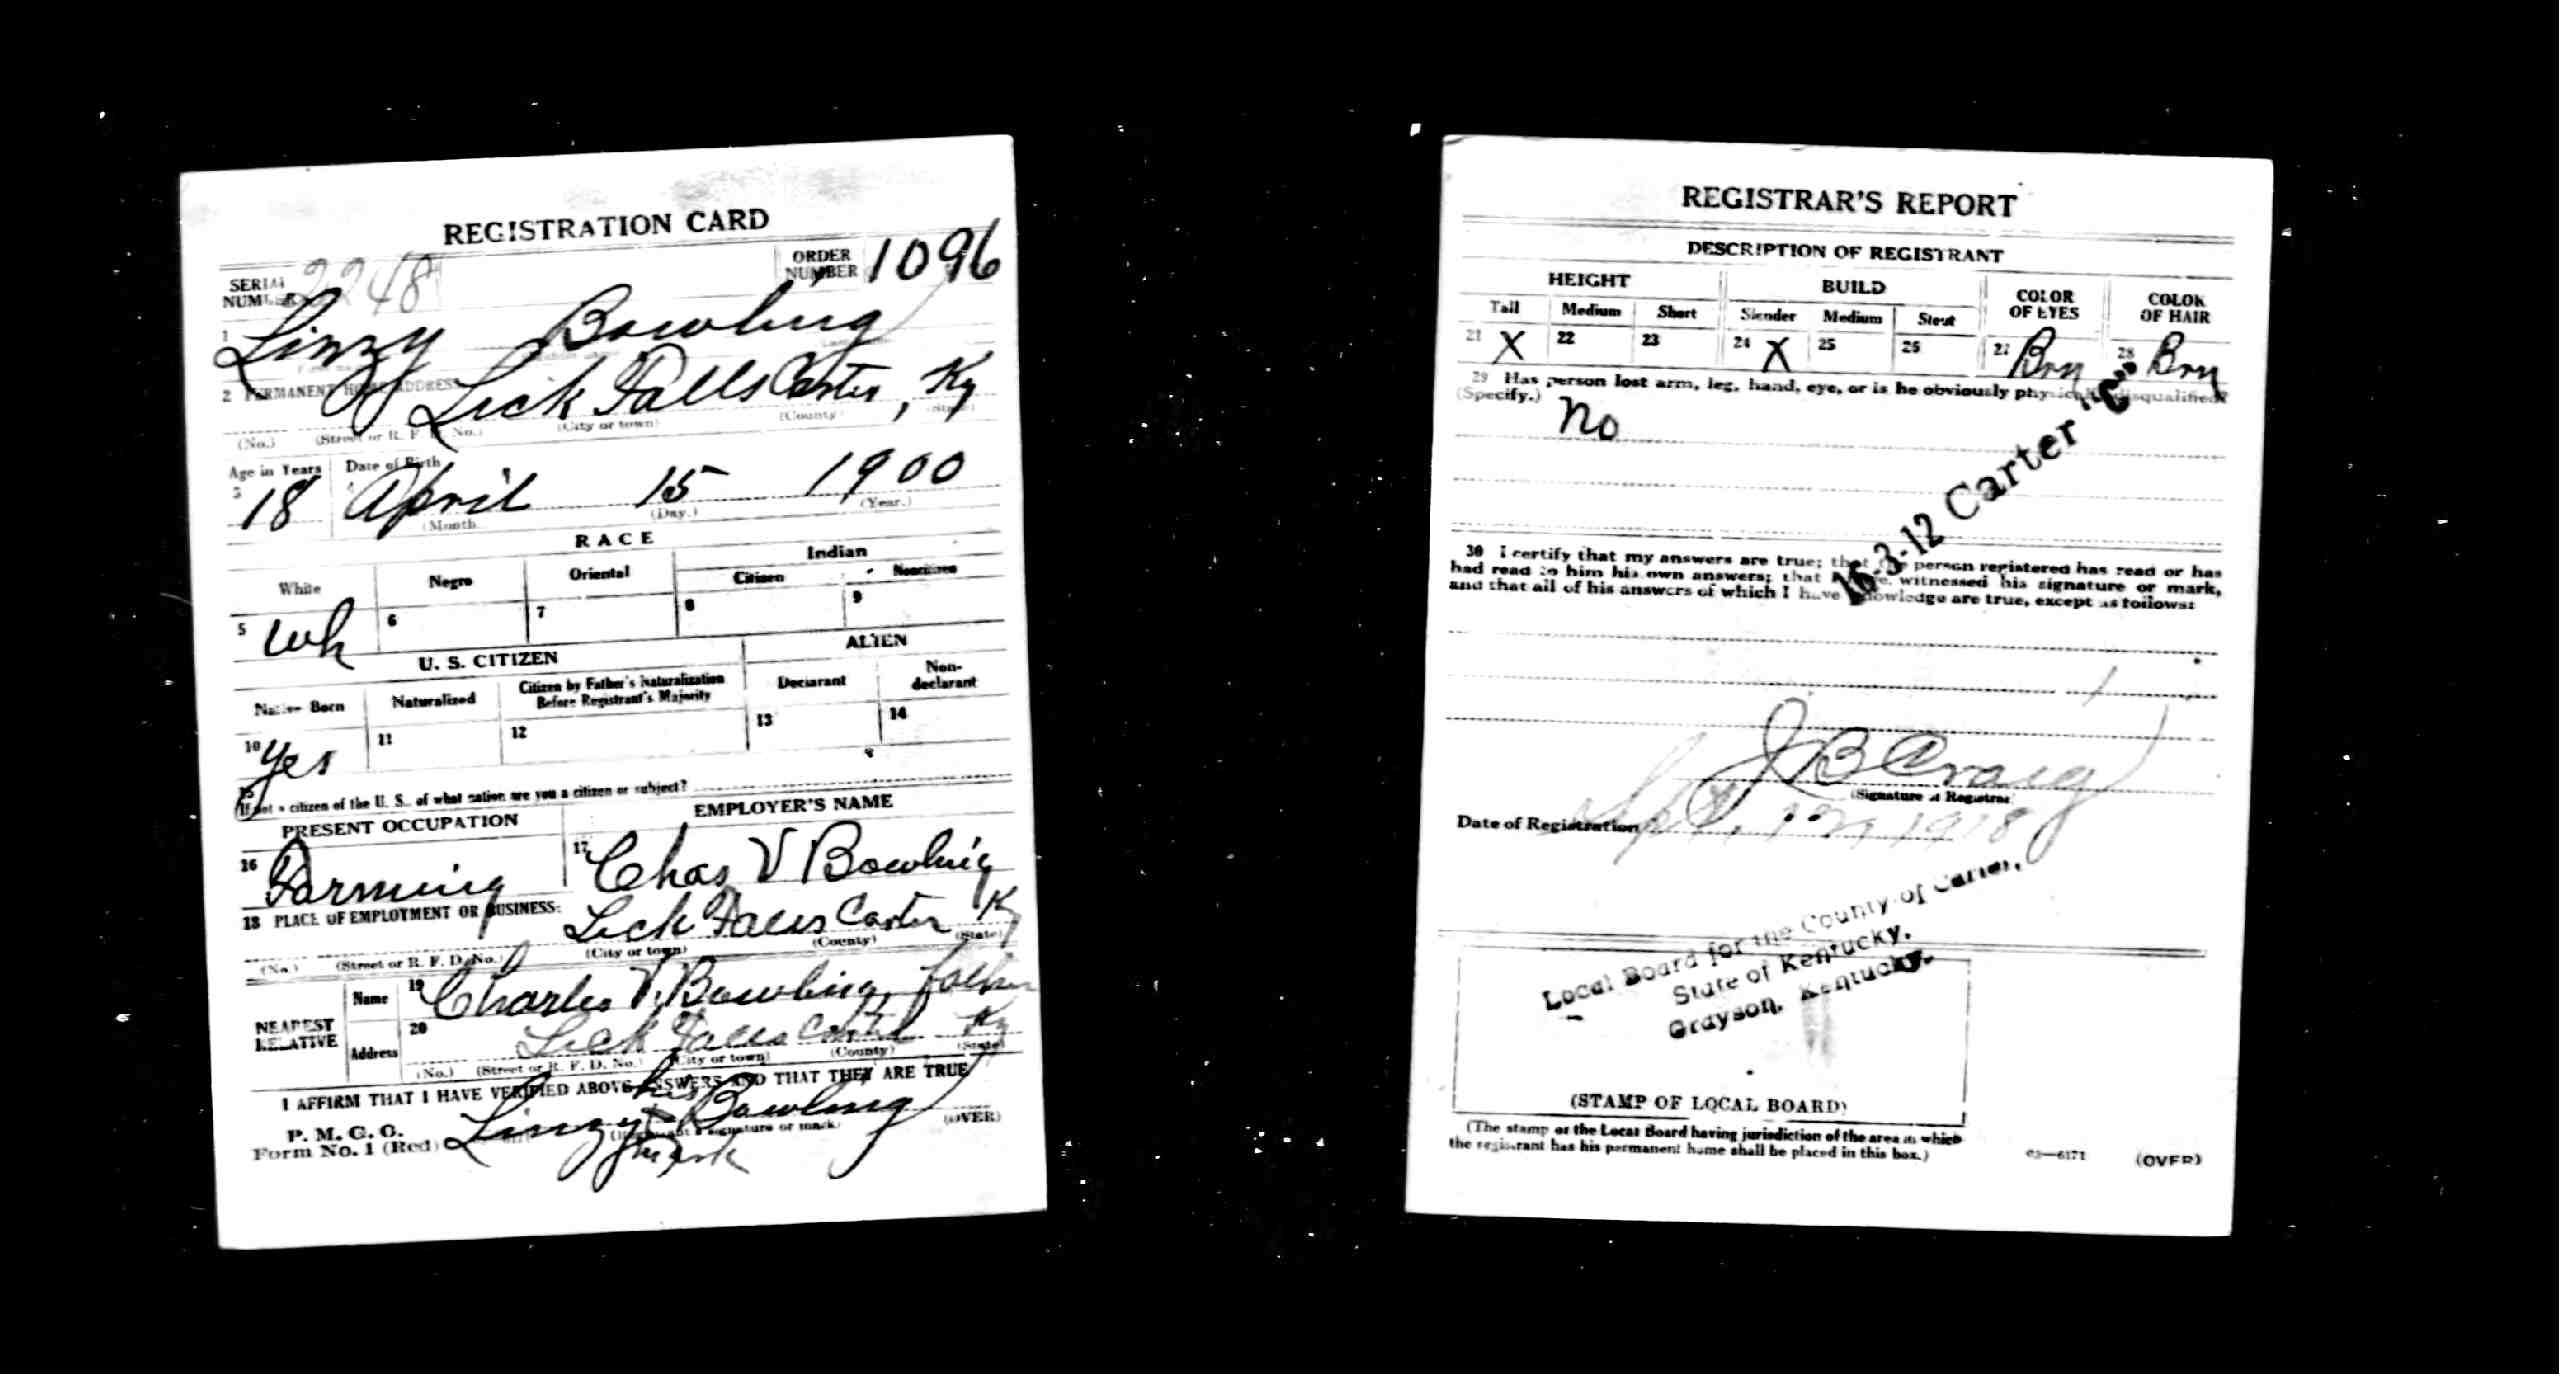 REGISTRATION CARD
SERIAL NUMBER 2248 ORDER NUMBER 1096
1 Linzy Bowling
2 PERMANENT HOME ADDRESS
Lick Falls Carter, Ky
(No.) (Street or R. F. D. No.) (City or town) (County) (State)
Age in Years Date of Birth
3 18 4 April 15 1900
(Month. (Day.) (Year.)
RACE
White Negro Oriental Indian
Citizen Noncitizen
5 Wh 6 7 8 9
U. S. CITIZEN ALIEN
Native Born Naturalized Citizen by Father's Naturalization Before Registrant's Majority Declarant Non-declarant
10 Yes 11 12 13 14
15
If not a citizen of the U. S., of what nation are you a citizen or subject?
PRESENT OCCUPATION EMPLOYER'S NAME
16 Farming 17 Chas V Bowling
18 PLACE OF EMPLOYMENT OR BUSINESS:
Lick Falls Carter Ky
(No.) (Street or R. F. D. No.) (City or town) (County) (State)
NEAREST RELATIVE Name 19 Charles V. Bowling, father
Address 20 Lick Falls Carter Ky
(No.) (Street or R. F. D. No.) (City or town) (County) (State)
I AFFIRM THAT I HAVE VERIFIED ABOVE ANSWERS AND THAT THEY ARE TRUE
P. M. G. O.
Form No. 1 (Red)
his
Linzy x Bowling
mark
(Registrant's signature or mark) (OVER)
REGISTRAR'S REPORT
DESCRIPTION OF REGISTRANT
HEIGHT BUILD COLOR OF EYES COLOR OF HAIR
Tall Medium Short Slender Medium Stout
21 X 22 23 24 X 25 26 27 Brn 28 Brn
29 Has person lost arm, leg, hand, eye, or is he obviously physically disqualified?
(Specify.) No
16-3-12 Carter "C"
30 I certify that my answers are true; that the person registered has read or has
had read to him his own answers; that I have witnessed his signature or mark,
and that all of his answers of which I have knowledge are true, except as follows:
J B Craig
(Signature of Registrar)
Date of Registration Sept. 12, 1918
Local Board for the County of Carter,
State of Kentucky.
Grayson, Kentucky.
(STAMP OF LOCAL BOARD)
(The stamp of the Local Board having jurisdiction of the area in which
the registrant has his permanent home shall be placed in this box.)
03—6171 (OVER)